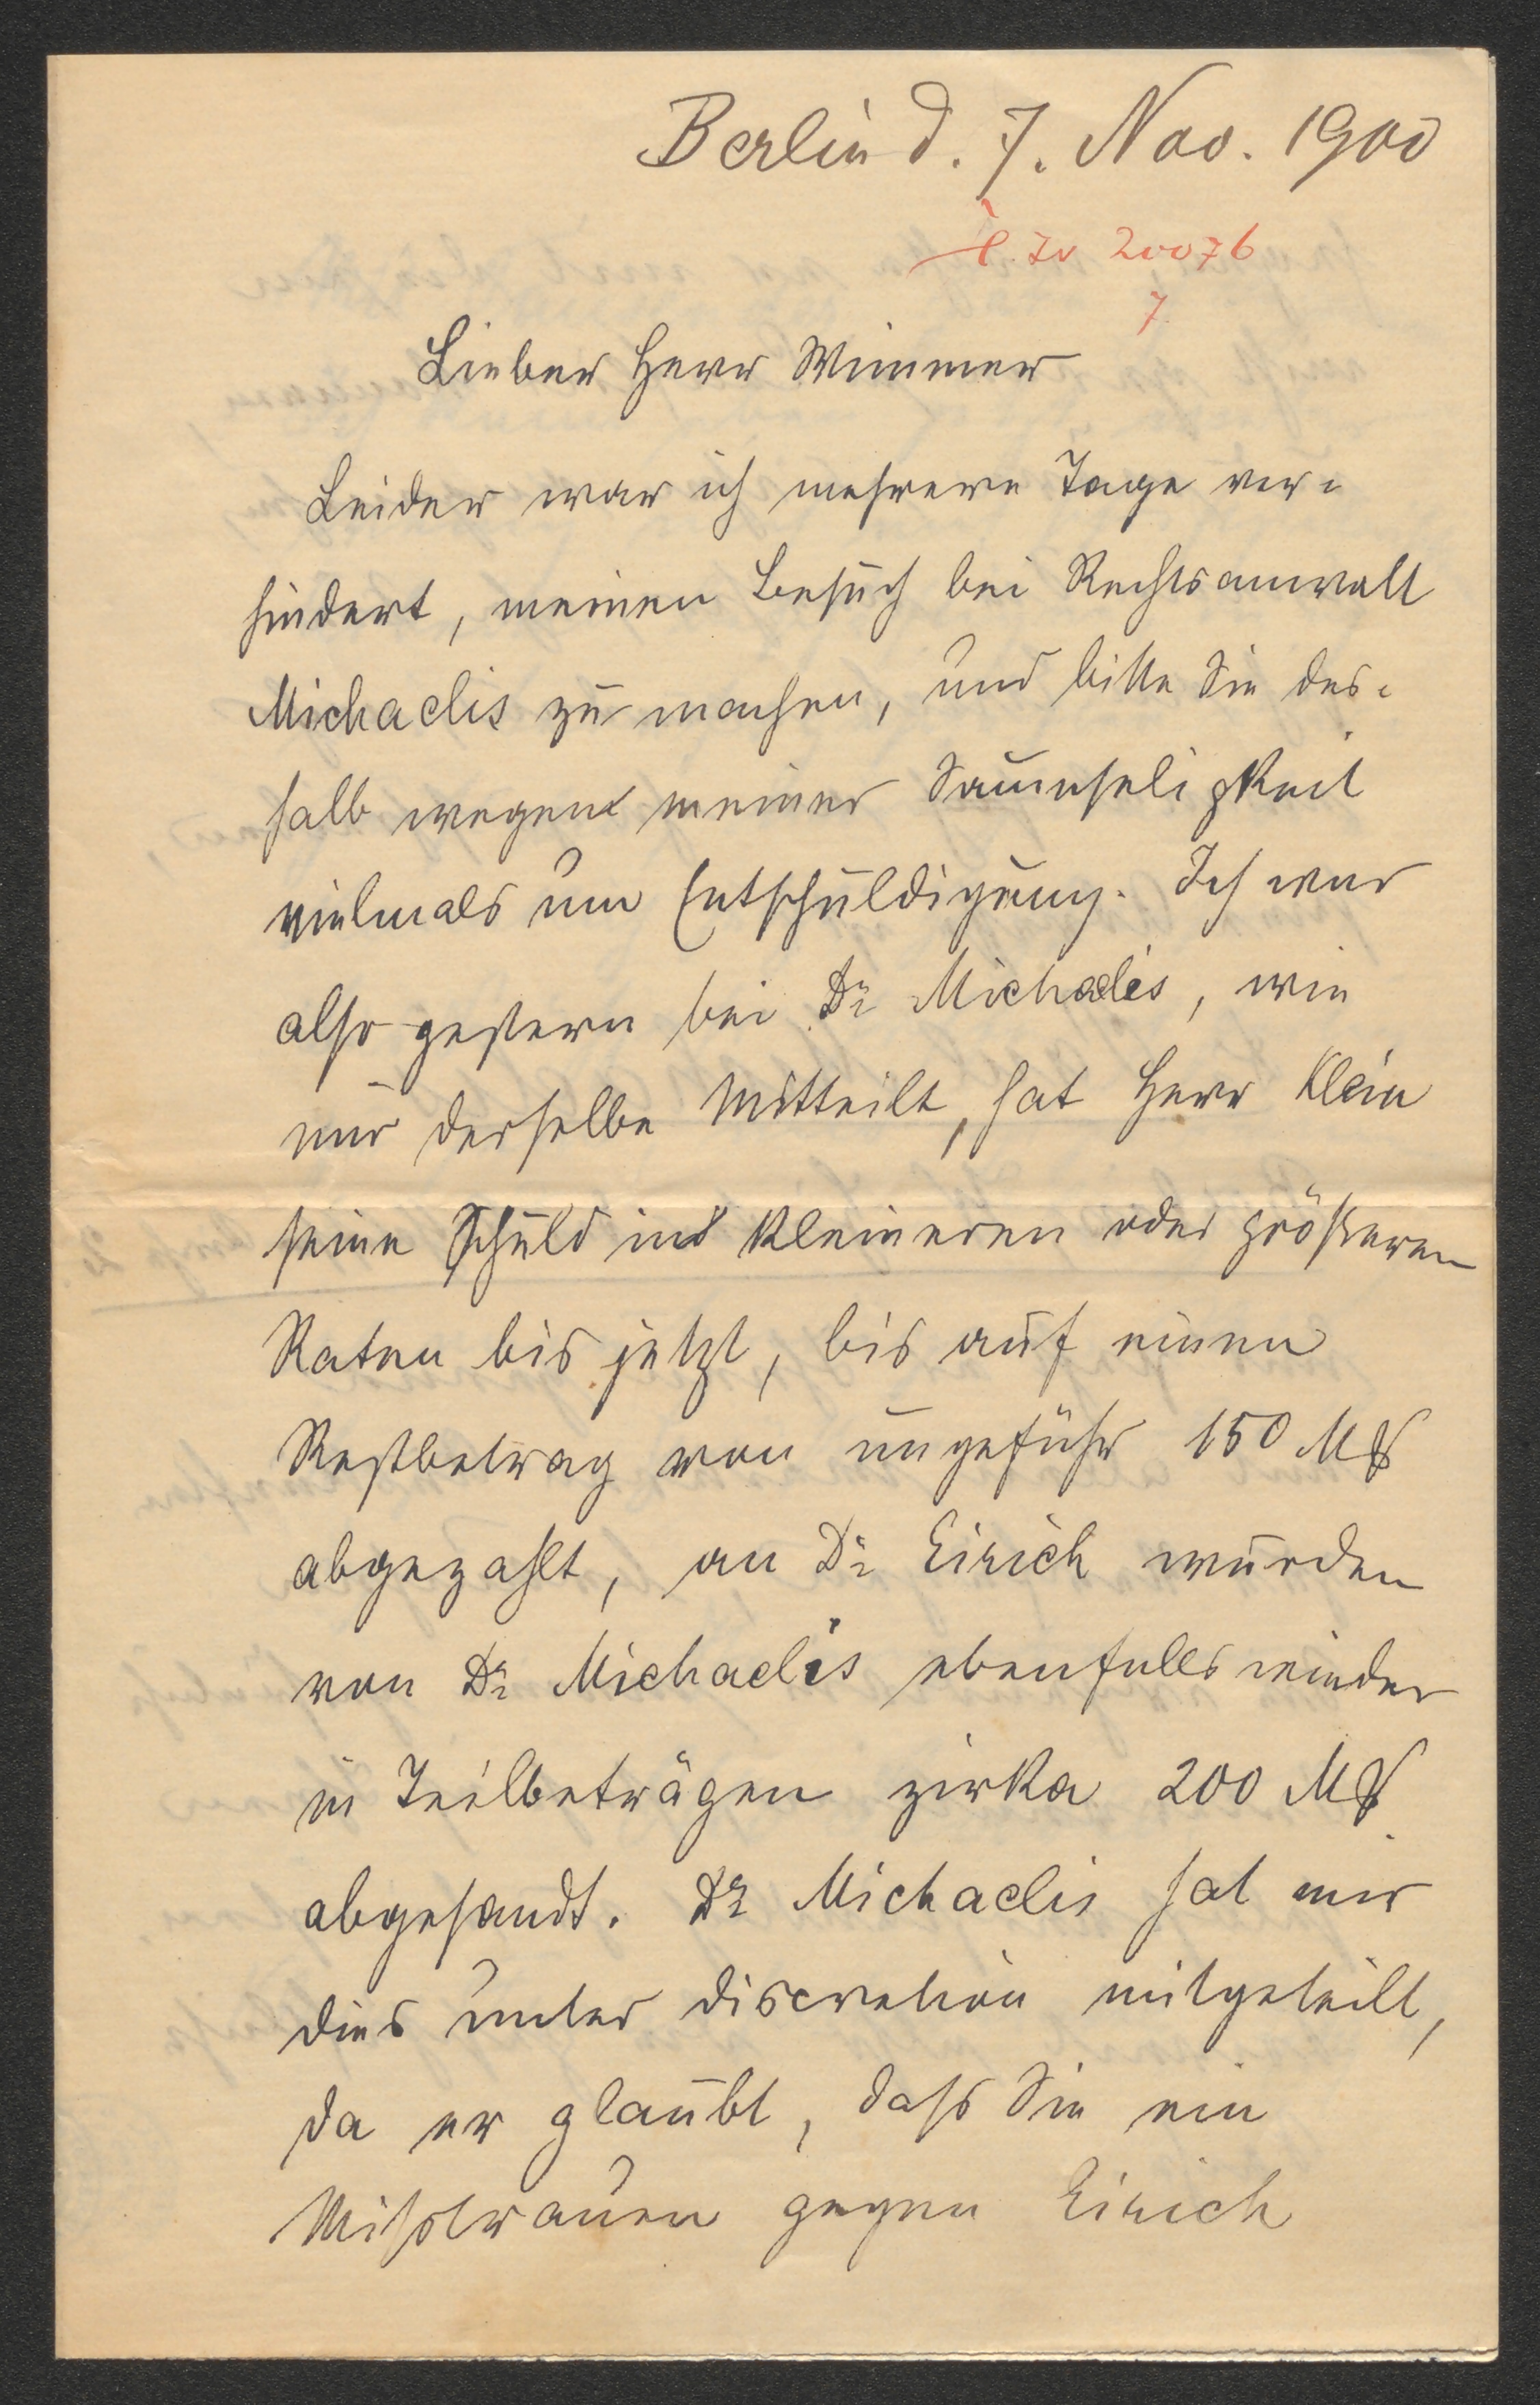 Berlin d. 7. Nov. 1900
20076
7
Lieber Herr Wimmer
Leider war ich mehrere Tage ver-
hindert, meinen Besuch bei Rechtsanwalt
Michaelis zu machen, und bitte Sie des-
halb wegen meiner Saumseligkeit
vielmals um Entschuldigung. Ich war
also gestern bei Dr Michaelis, wie
mir derselbe mitteilt, hat Herr Klein
seine Schuld in kleineren oder größeren
Raten bis jetzt, bis auf einen
Restbetrag von ungefähr 150 Mk
abgezahlt, an Dr Eirich wurden
von Dr Michaelis ebenfalls wieder
in Teilbeträgen zirka 200 Mk
abgesandt. Dr Michaelis hat mir
dies unter discretion mitgeteilt,
da er glaubt, dass Sie ein
Misstrauen gegen Eirich